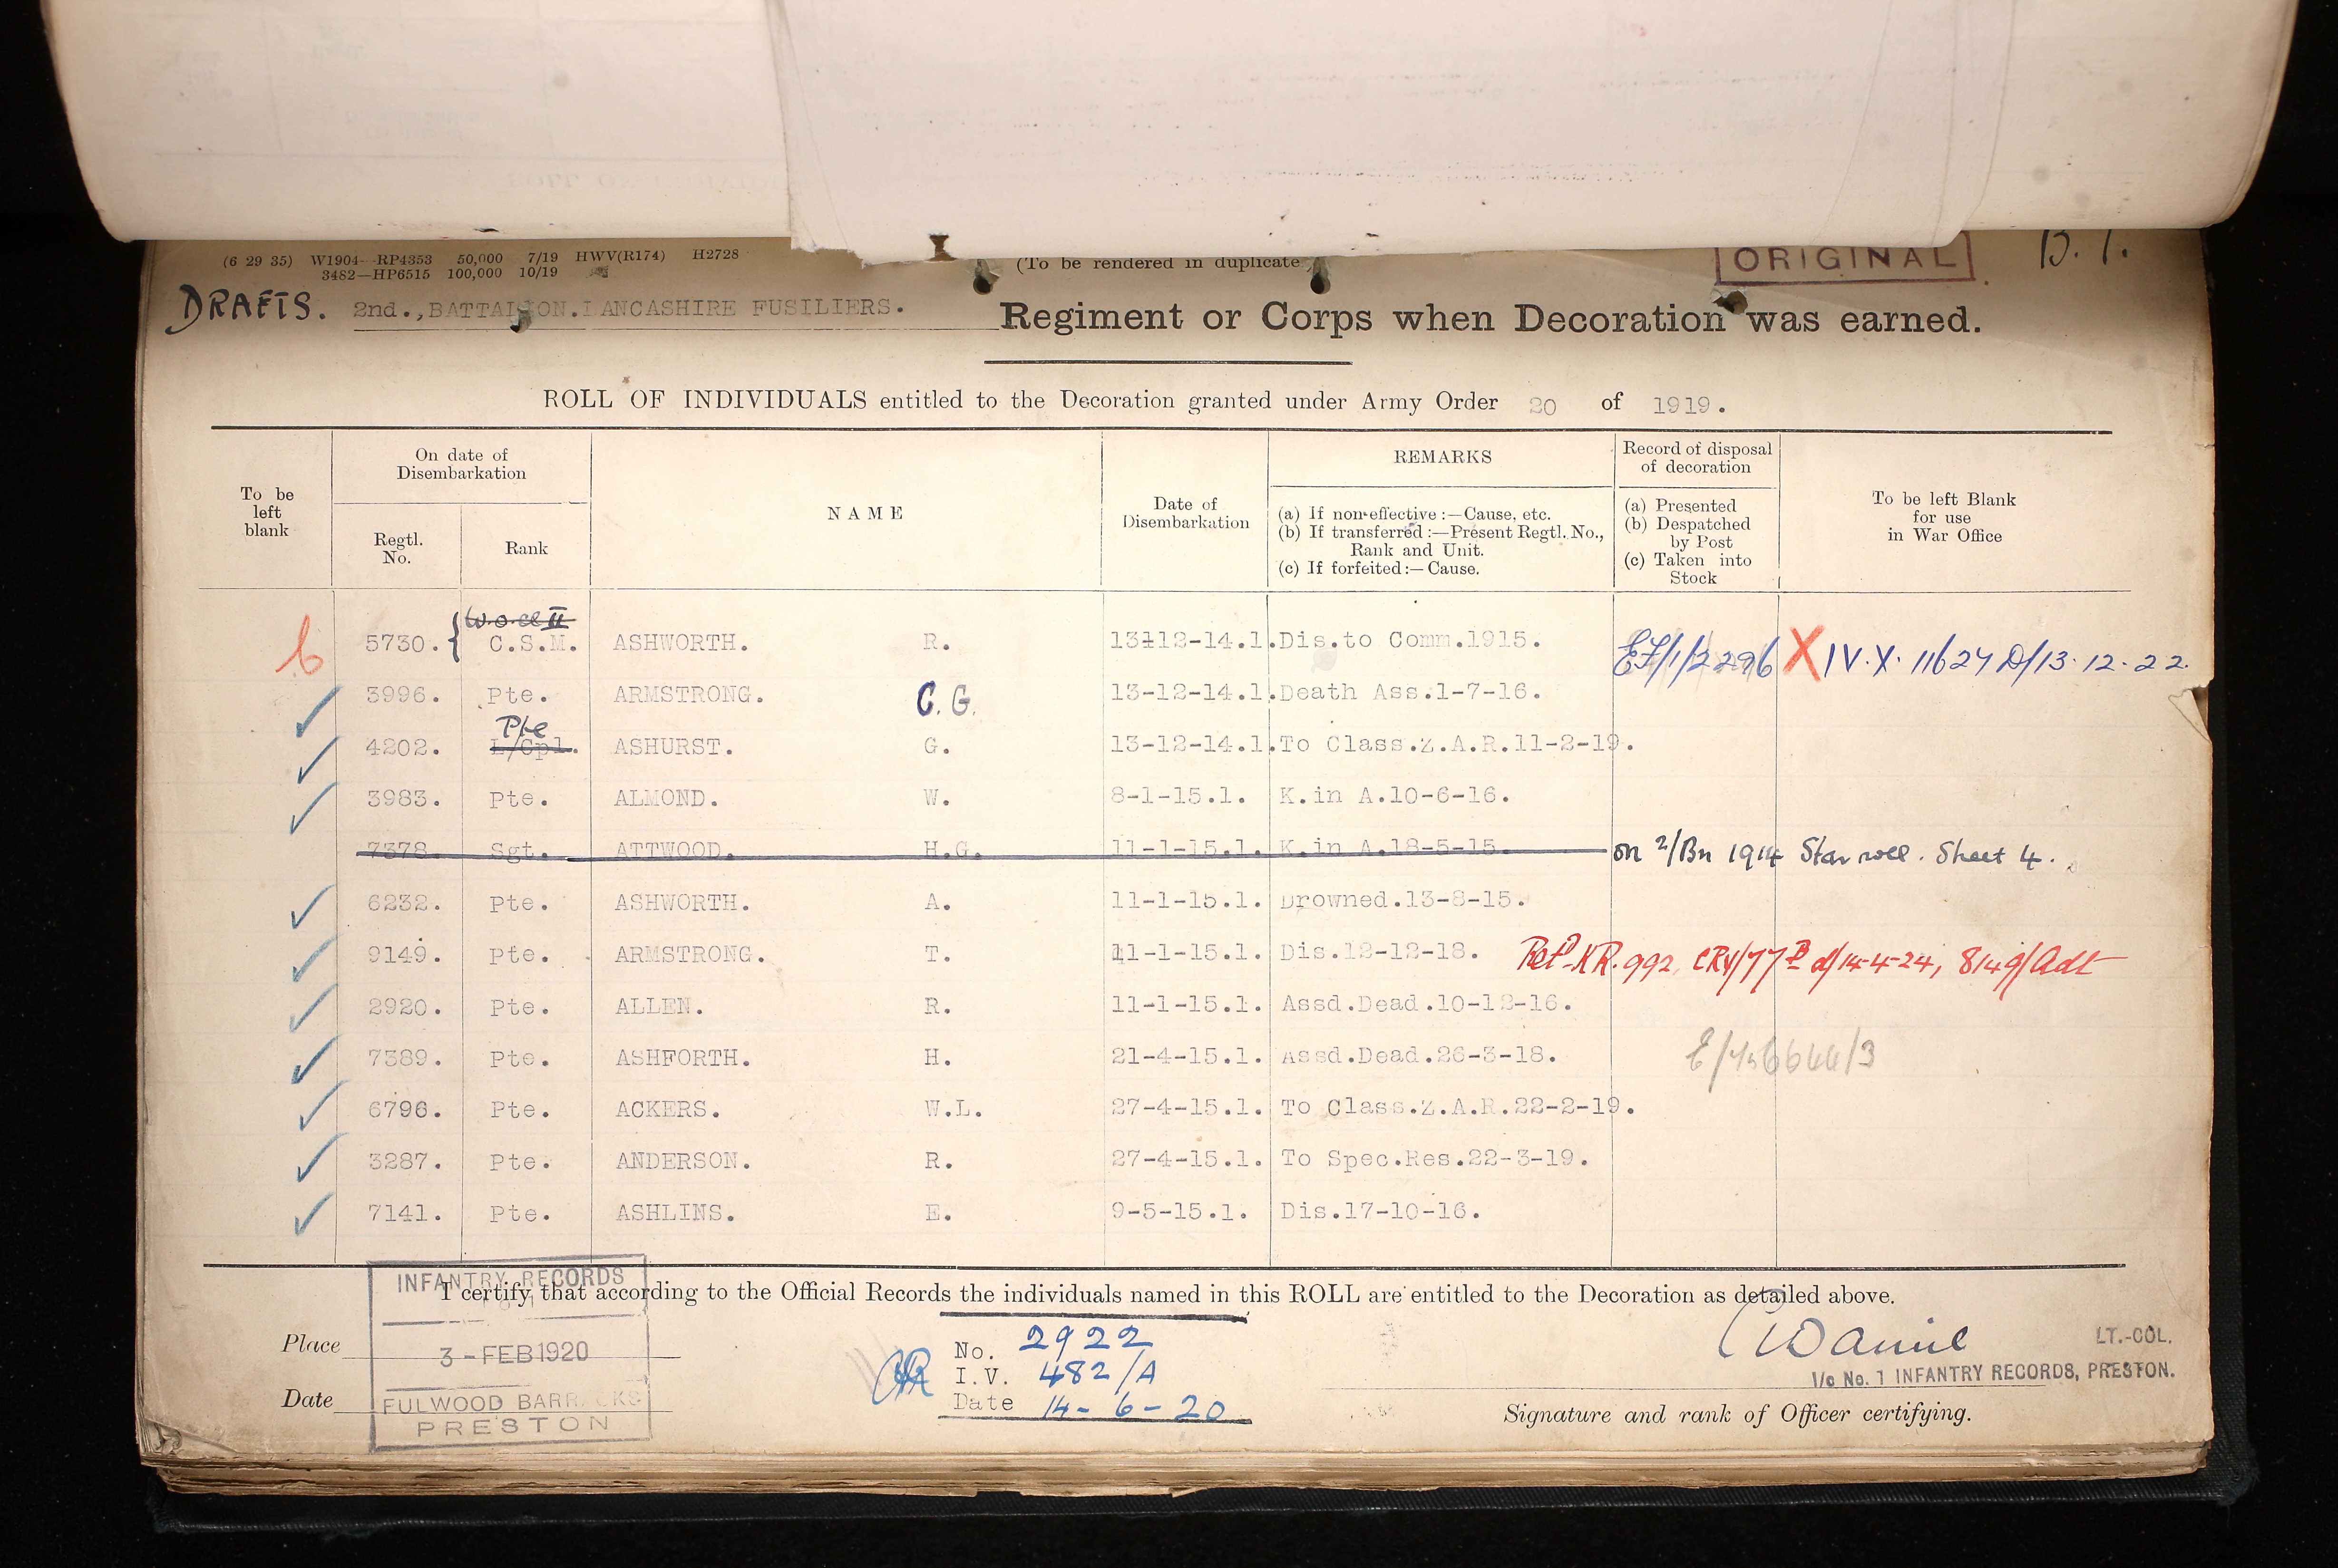 (6 29 35) W1904—RP4353 50,000 7/19 HWV(R174) H2728
3482—HP6515 100,000 10/19
(To be rendered in duplicate
ORIGINAL
B. 1.
DRAFTS. 2nd.,BATTALION.LANCASHIRE FUSILIERS. Regiment or Corps when Decoration was earned.
ROLL OF INDIVIDUALS entitled to the Decoration granted under Army Order 20 of 1919.
To be left blank
On date of Disembarkation
Regtl. No.
Rank
NAME
Date of Disembarkation
REMARKS
(a) If non-effective :—Cause, etc.
(b) If transferred :—Present Regtl. No., Rank and Unit.
(c) If forfeited :—Cause.
Record of disposal of decoration
(a) Presented
(b) Despatched by Post
(c) Taken into Stock
To be left Blank for use in War Office
W.O.Cl II
5730. { C.S.M. ASHWORTH. R. 13-12-14.1. Dis.to Comm.1915. EF/1/2296 X IV.X. 11624 D/13.12.22.
3996. Pte. ARMSTRONG. C.G. 13-12-14.1. Death Ass.1-7-16.
Pte
4202. L/Cpl. ASHURST. G. 13-12-14.1. To Class.Z.A.R.11-2-19.
3983. Pte. ALMOND. W. 8-1-15.1. K.in A.10-6-16.
7378 Sgt. ATTWOOD. H.G. 11-1-15.1. K.in A.18-5-15. on 2/Bn 1914 Star roll. Sheet 4.
6232. Pte. ASHWORTH. A. 11-1-15.1. Drowned.13-8-15.
9149. Pte. ARMSTRONG. T. 11-1-15.1. Dis.12-12-18. Retd KR.992. d/14-4-24, 8149/Adt
2920. Pte. ALLEN. R. 11-1-15.1. Assd.Dead.10-12-16.
7389. Pte. ASHFORTH. H. 21-4-15.1. Assd.Dead.26-3-18.
6796. Pte. ACKERS. W.L. 27-4-15.1. To Class.Z.A.R.22-2-19.
3287. Pte. ANDERSON. R. 27-4-15.1. To Spec.Res.22-3-19.
7141. Pte. ASHLINS. E. 9-5-15.1. Dis.17-10-16.
I certify that according to the Official Records the individuals named in this ROLL are entitled to the Decoration as detailed above.
INFANTRY RECORDS
3 - FEB 1920
FULWOOD BARRACKS
PRESTON
Place
Date
No. 2922
I.V. 482/A
Date 14-6-20
LT.-COL.
I/c No. 1 INFANTRY RECORDS, PRESTON.
Signature and rank of Officer certifying.